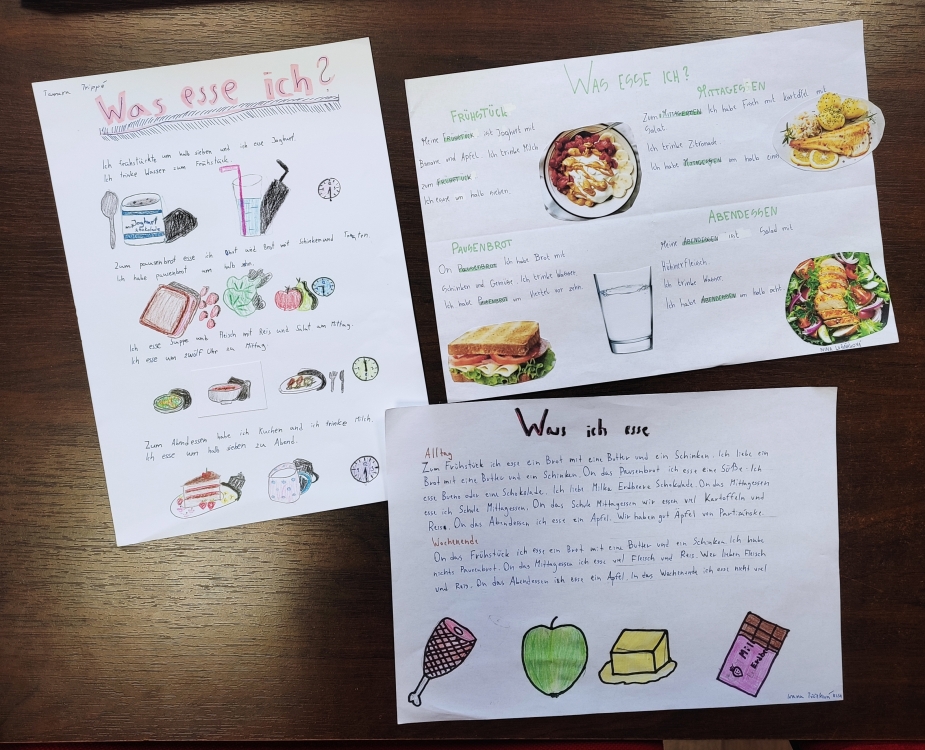 Was esse ich?
Ich frühstückte um halb sieben und ich esse Joghurt.
Ich trinke Wasser zum Frühstück.
Joghurt
Zum pausenbrot esse ich Brot mit Schinken und
Ich habe pausenbrot um halb zehn.
Ich esse Suppe und Fleisch mit Reis und Salat am Mittag.
Ich esse um zwölf Uhr zu Mittag.
Zum Abendessen habe ich Kuchen and ich trinke Milch.
Ich esse um halb sieben zu Abend.
WAS ESSE ICH?
FRÜHSTÜCK
Meine FRÜHSTÜCK ist Joghurt mit
Banane und Apfel. Ich trinke Milch
zum FRÜHSTÜCK
Ich esse um halb sieben.
MITTAGESSEN
Zum Ich habe Fisch mit kartoffel mit
Salat.
Ich trinke Zitronade.
Ich habe MITTAGESSEN um halb eins
PAUSENBROT
On PAUSENBROT Ich habe Brot mit
Schinken und Gemüse. Ich trinke Wasser.
Ich habe PAUSENBROT um Viertel vor zehn.
ABENDESSEN
Meine ABENDESSEN ist Salad mit
Hühnerfleisch.
Ich trinke Wasser.
Ich habe ABENDESSEN um halb acht
Was ich esse
Alltag
Zum Frühstück ich esse ein Brot mit eine Butter und ein Schinken. Ich liebe ein
Brot mit eine Butter und ein Schinken. On das Pausenbrot ich esse eine Süße. Ich
esse Bueno oder eine Schokolade. Ich liebe Milka Erdbeere Schokolade. On das Mittagessen
esse ich Schule Mittagessen. On das Schule Mittagessen wir essen viel Kartoffeln und
Reise. On das Abendessen ich esse ein Apfel. Wir haben gut Apfel von Partizánske
Wochenende
On das Frühstück ich esse ein Brot mit eine Butter und ein Schinken. Ich habe
nichts Pausenbrot. On das Mittagessen ich esse viel Fleisch und Reis. Wer lieben Fleisch
und Reis. On das Abendessen ich esse ein Apfel. In das Wochenende ich esse nicht viel